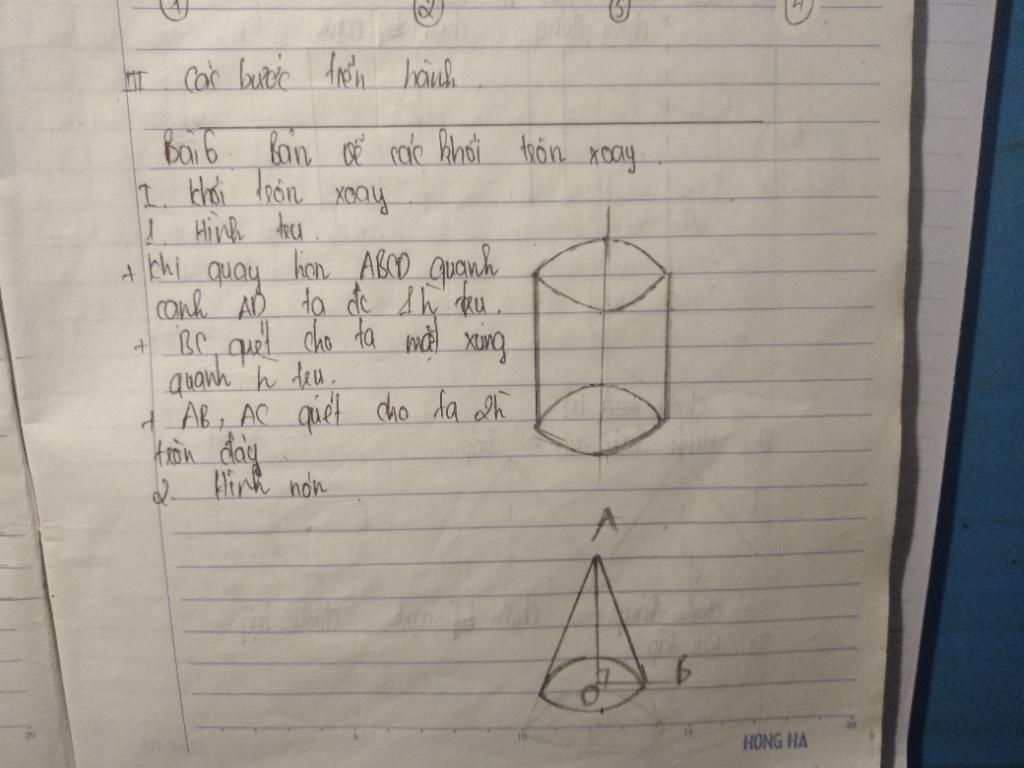 1 2 3 4
III Các bước tiến hành
Bài 6 Bản vẽ các khối tròn xoay
I. Khối tròn xoay
1. Hình trụ.
+ Khi quay hcn ABCD quanh
cạnh AD ta đc 1 h trụ.
+ BC quét cho ta mặt xung
quanh h trụ.
+ AB, AC quét cho ta 2h
tròn đáy
2. Hình nón
A
B
O
20 5 10 15 20
HONG HA